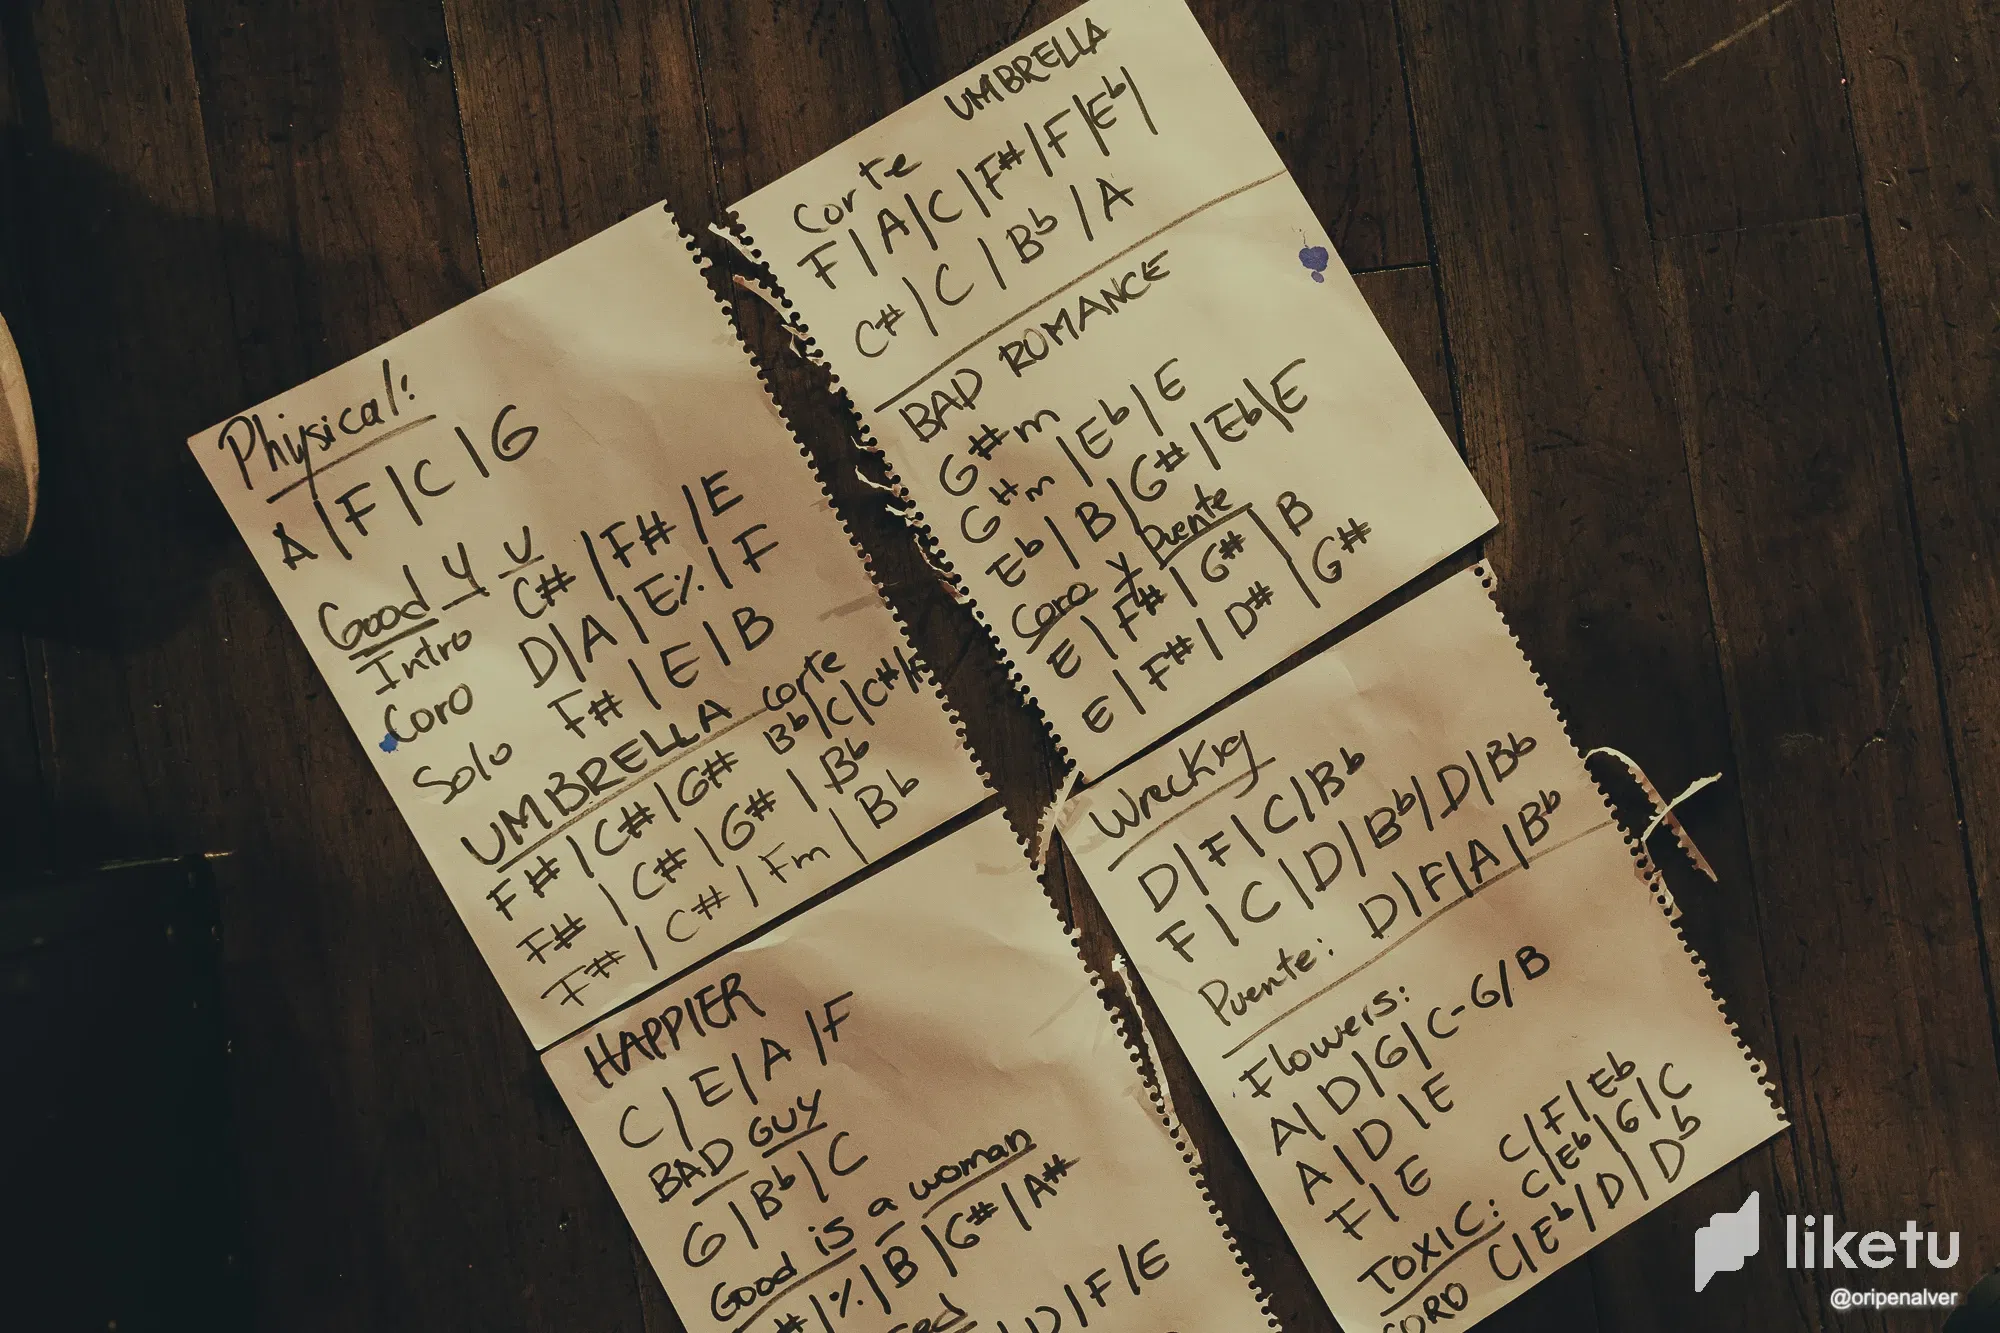 Physical:
A | F | C | G
Good 4 U
Intro C# | F# | E
Coro D | A | E ٪ | F
Solo F# | E | B
UMBRELLA corte
F# | C# | G# Bb | C | C# |
F# | C# | G# | Bb
F# | C# | Fm | Bb
UMBRELLA
Corte
F | A | C | F# | F | Eb |
C# | C | Bb | A
BAD ROMANCE
G#m
G#m | Eb | E
Eb | B | G# | Eb | E
Coro y Puente
E | F# | G# | B
E | F# | D# | G#
HAPPIER
C | E | A | F
BAD GUY
G | Bb | C
Good is a woman
# | ٪ | B | G# | A#
D | F | E
Wreckig
D | F | C | Bb
F | C | D | Bb | D | Bb
Puente: D | F | A | Bb
Flowers:
A | D | G | C - G / B
A | D | E
F | E
TOXIC: C | F | Eb
C | Eb | G | C
CORO C | Eb | D | Db
liketu
@oripenalver